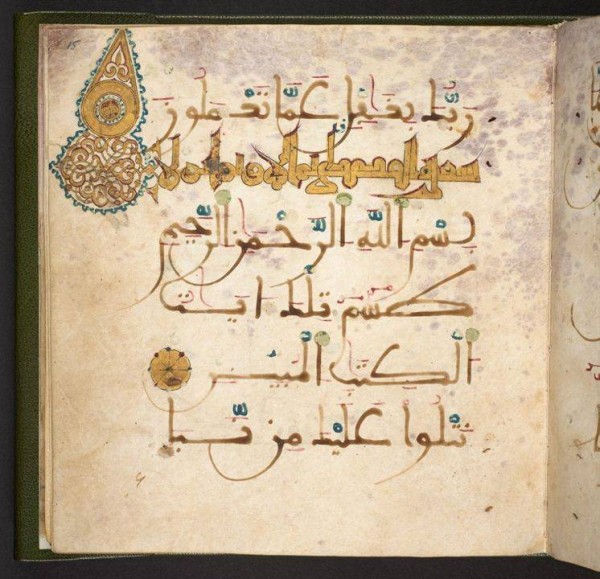 15
رَبُّكَ بِغَٰفِلٍ عَمَّا تَعْمَلُونَ
سورة القصص
بِسْمِ اللَّهِ الرَّحْمَٰنِ الرَّحِيمِ
طسم تِلْكَ ءَايَٰتُ
الْكِتَٰبِ الْمُبِينِ
نَتْلُوا عَلَيْكَ مِن نَّبَإِ